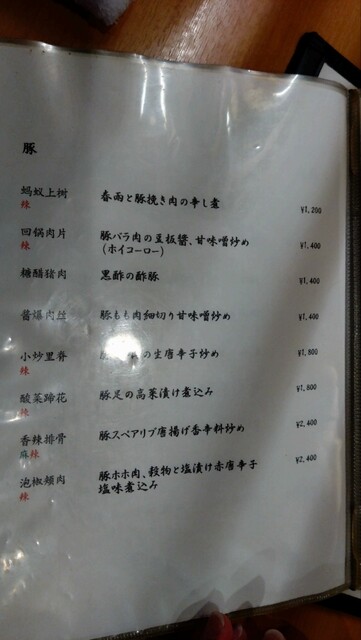 豚
蚂蚁上树 春雨と豚挽き肉の辛し煮 ¥1,200
辣
回锅肉片 豚バラ肉の豆板醤、甘味噌炒め ¥1,400
辣 (ホイコーロー)
糖醋猪肉 黒酢の酢豚 ¥1,400
酱爆肉丝 豚もも肉細切り甘味噌炒め ¥1,400
小炒里脊 豚 の生唐辛子炒め ¥1,800
辣
酸菜蹄花 豚足の高菜漬け煮込み ¥1,800
辣
香辣排骨 豚スペアリブ唐揚げ香辛料炒め ¥2,400
麻辣
泡椒颊肉 豚ホホ肉、穀物と塩漬け赤唐辛子 ¥2,400
辣 塩味煮込み